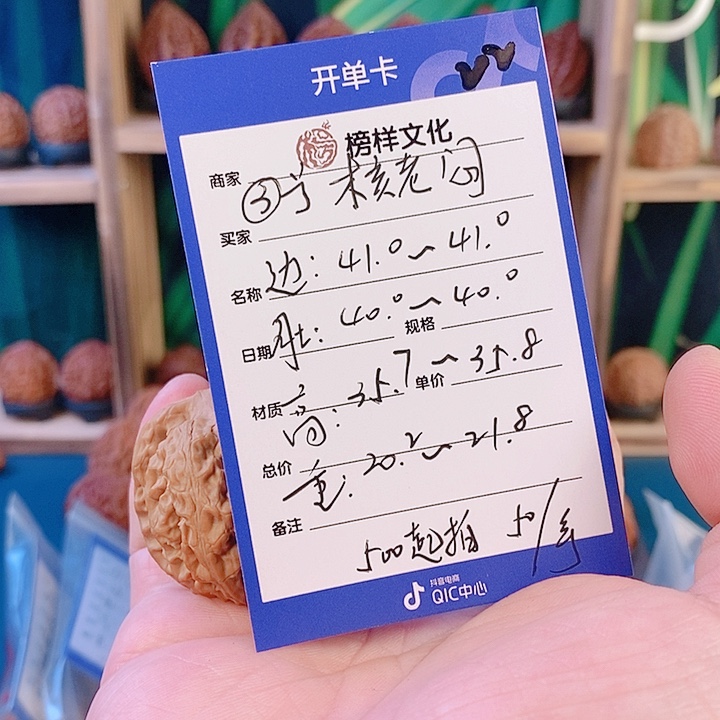 开单卡
榜样文化
商家
③号 核老闆
买家
边: 41.0～41.0
名称
肚: 40.0～40.0
日期
规格
高: 35.7～35.8
材质
单价
重: 20.2～21.8
总价
备注
500起拍 50/手
抖音电商
QIC中心